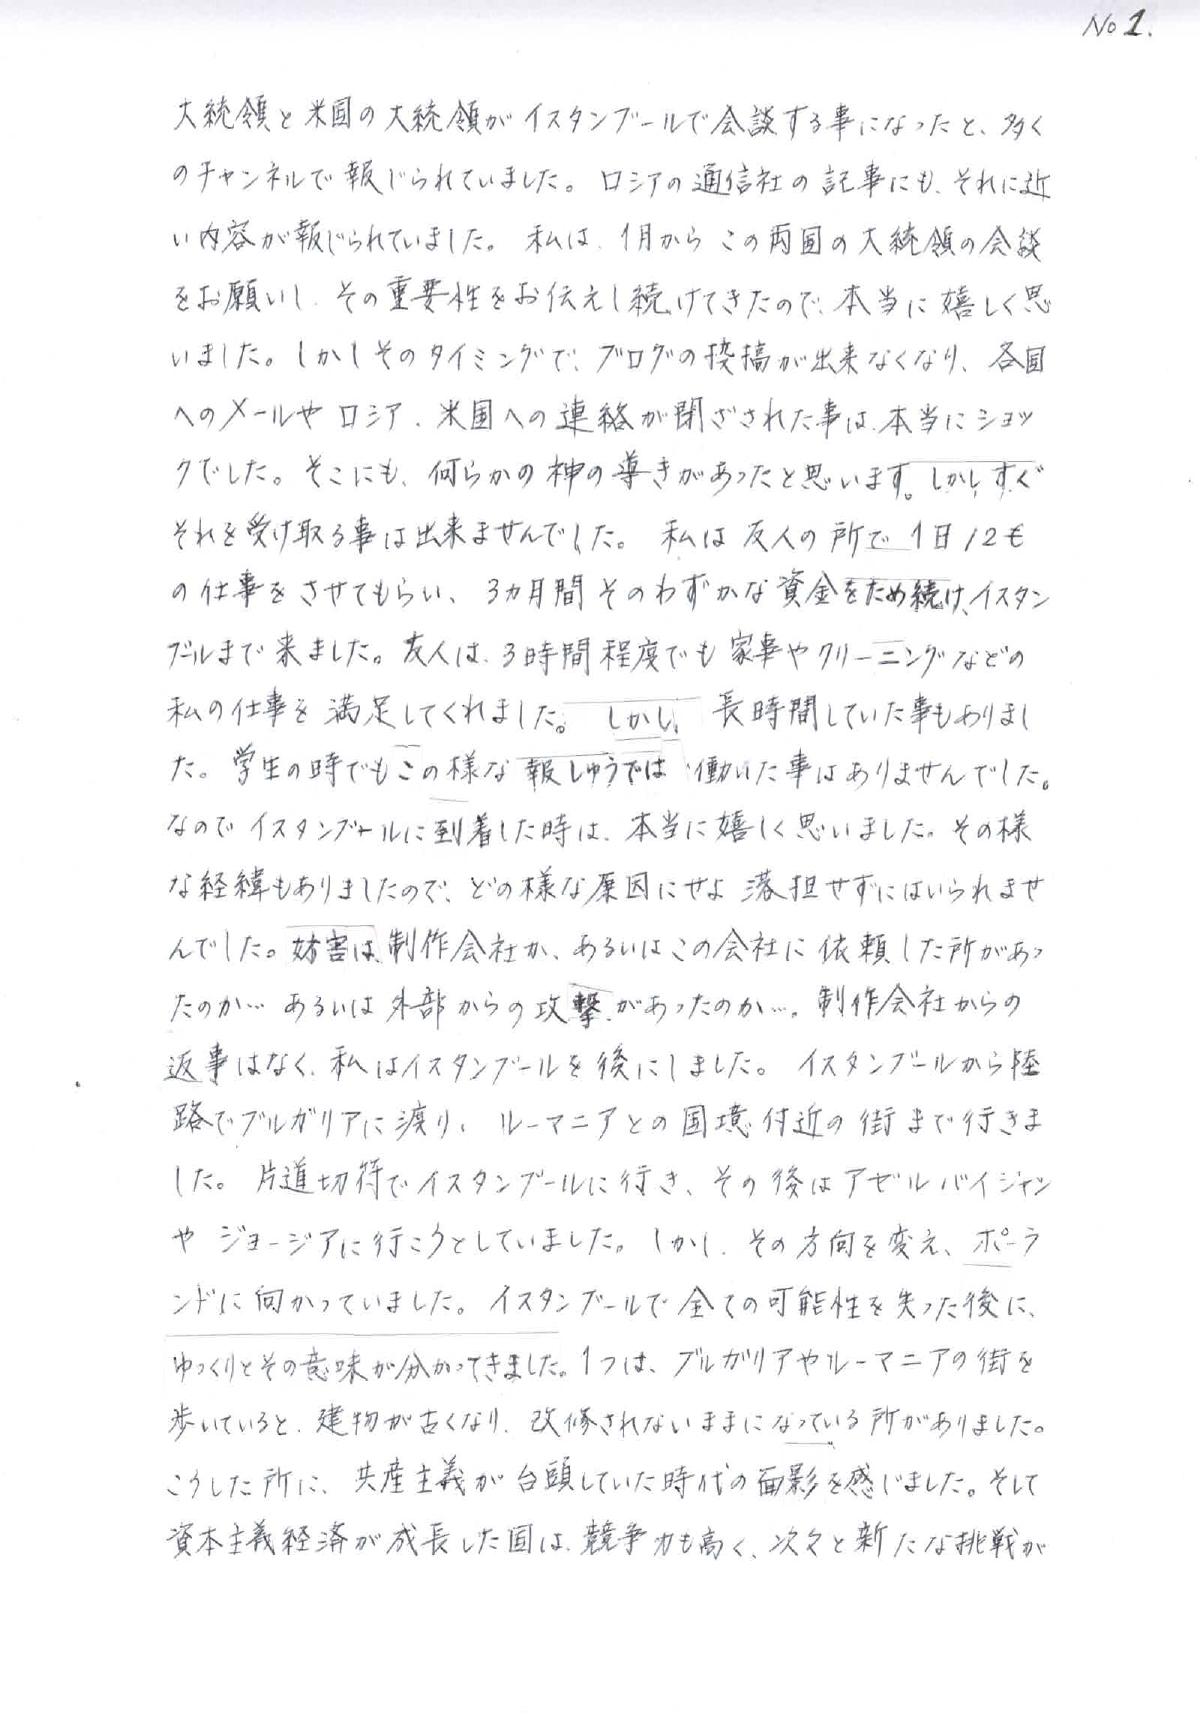 No 1.
大統領と米国の大統領がイスタンブールで会談する事になったと、多く
のチャンネルで報じられていました。ロシアの通信社の記事にも、それに近
い内容が報じられていました。私は、1月からこの両国の大統領の会談
をお願いし、その重要性をお伝えし続けてきたので、本当に嬉しく思
いました。しかしそのタイミングで、ブログの投稿が出来なくなり、各国
へのメールやロシア、米国への連絡が閉ざされた事は、本当にショッ
クでした。そこにも、何らかの神の導きがあったと思います。しかし、すぐ
それを受け取る事は出来ませんでした。私は友人の所で1日12€
の仕事をさせてもらい、3カ月間そのわずかな資金をため続け、イスタン
ブールまで来ました。友人は、3時間程度でも家事やクリーニングなどの
私の仕事を満足してくれました。しかし、長時間していた事もありまし
た。学生の時でもこの様な報しゅうでは働いた事はありませんでした。
なのでイスタンブールに到着した時は、本当に嬉しく思いました。その様
な経緯もありましたので、どの様な原因にせよ落担せずにはいられませ
んでした。妨害は、制作会社か、あるいはこの会社に依頼した所があっ
たのか… あるいは外部からの攻撃があったのか…。制作会社からの
返事はなく、私はイスタンブールを後にしました。イスタンブールから陸
路でブルガリアに渡り、ルーマニアとの国境付近の街まで行きま
した。片道切符でイスタンブールに行き、その後はアゼルバイジャン
やジョージアに行こうとしていました。しかし、その方向を変え、ポーラ
ンドに向かっていました。イスタンブールで全ての可能性を失った後に、
ゆっくりとその意味が分かってきました。1つは、ブルガリアやルーマニアの街を
歩いていると、建物が古くなり、改修されないままになっている所がありました。
こうした所に、共産主義が台頭していた時代の面影を感じました。そして
資本主義経済が成長した国は、競争力も高く、次々と新たな挑戦が